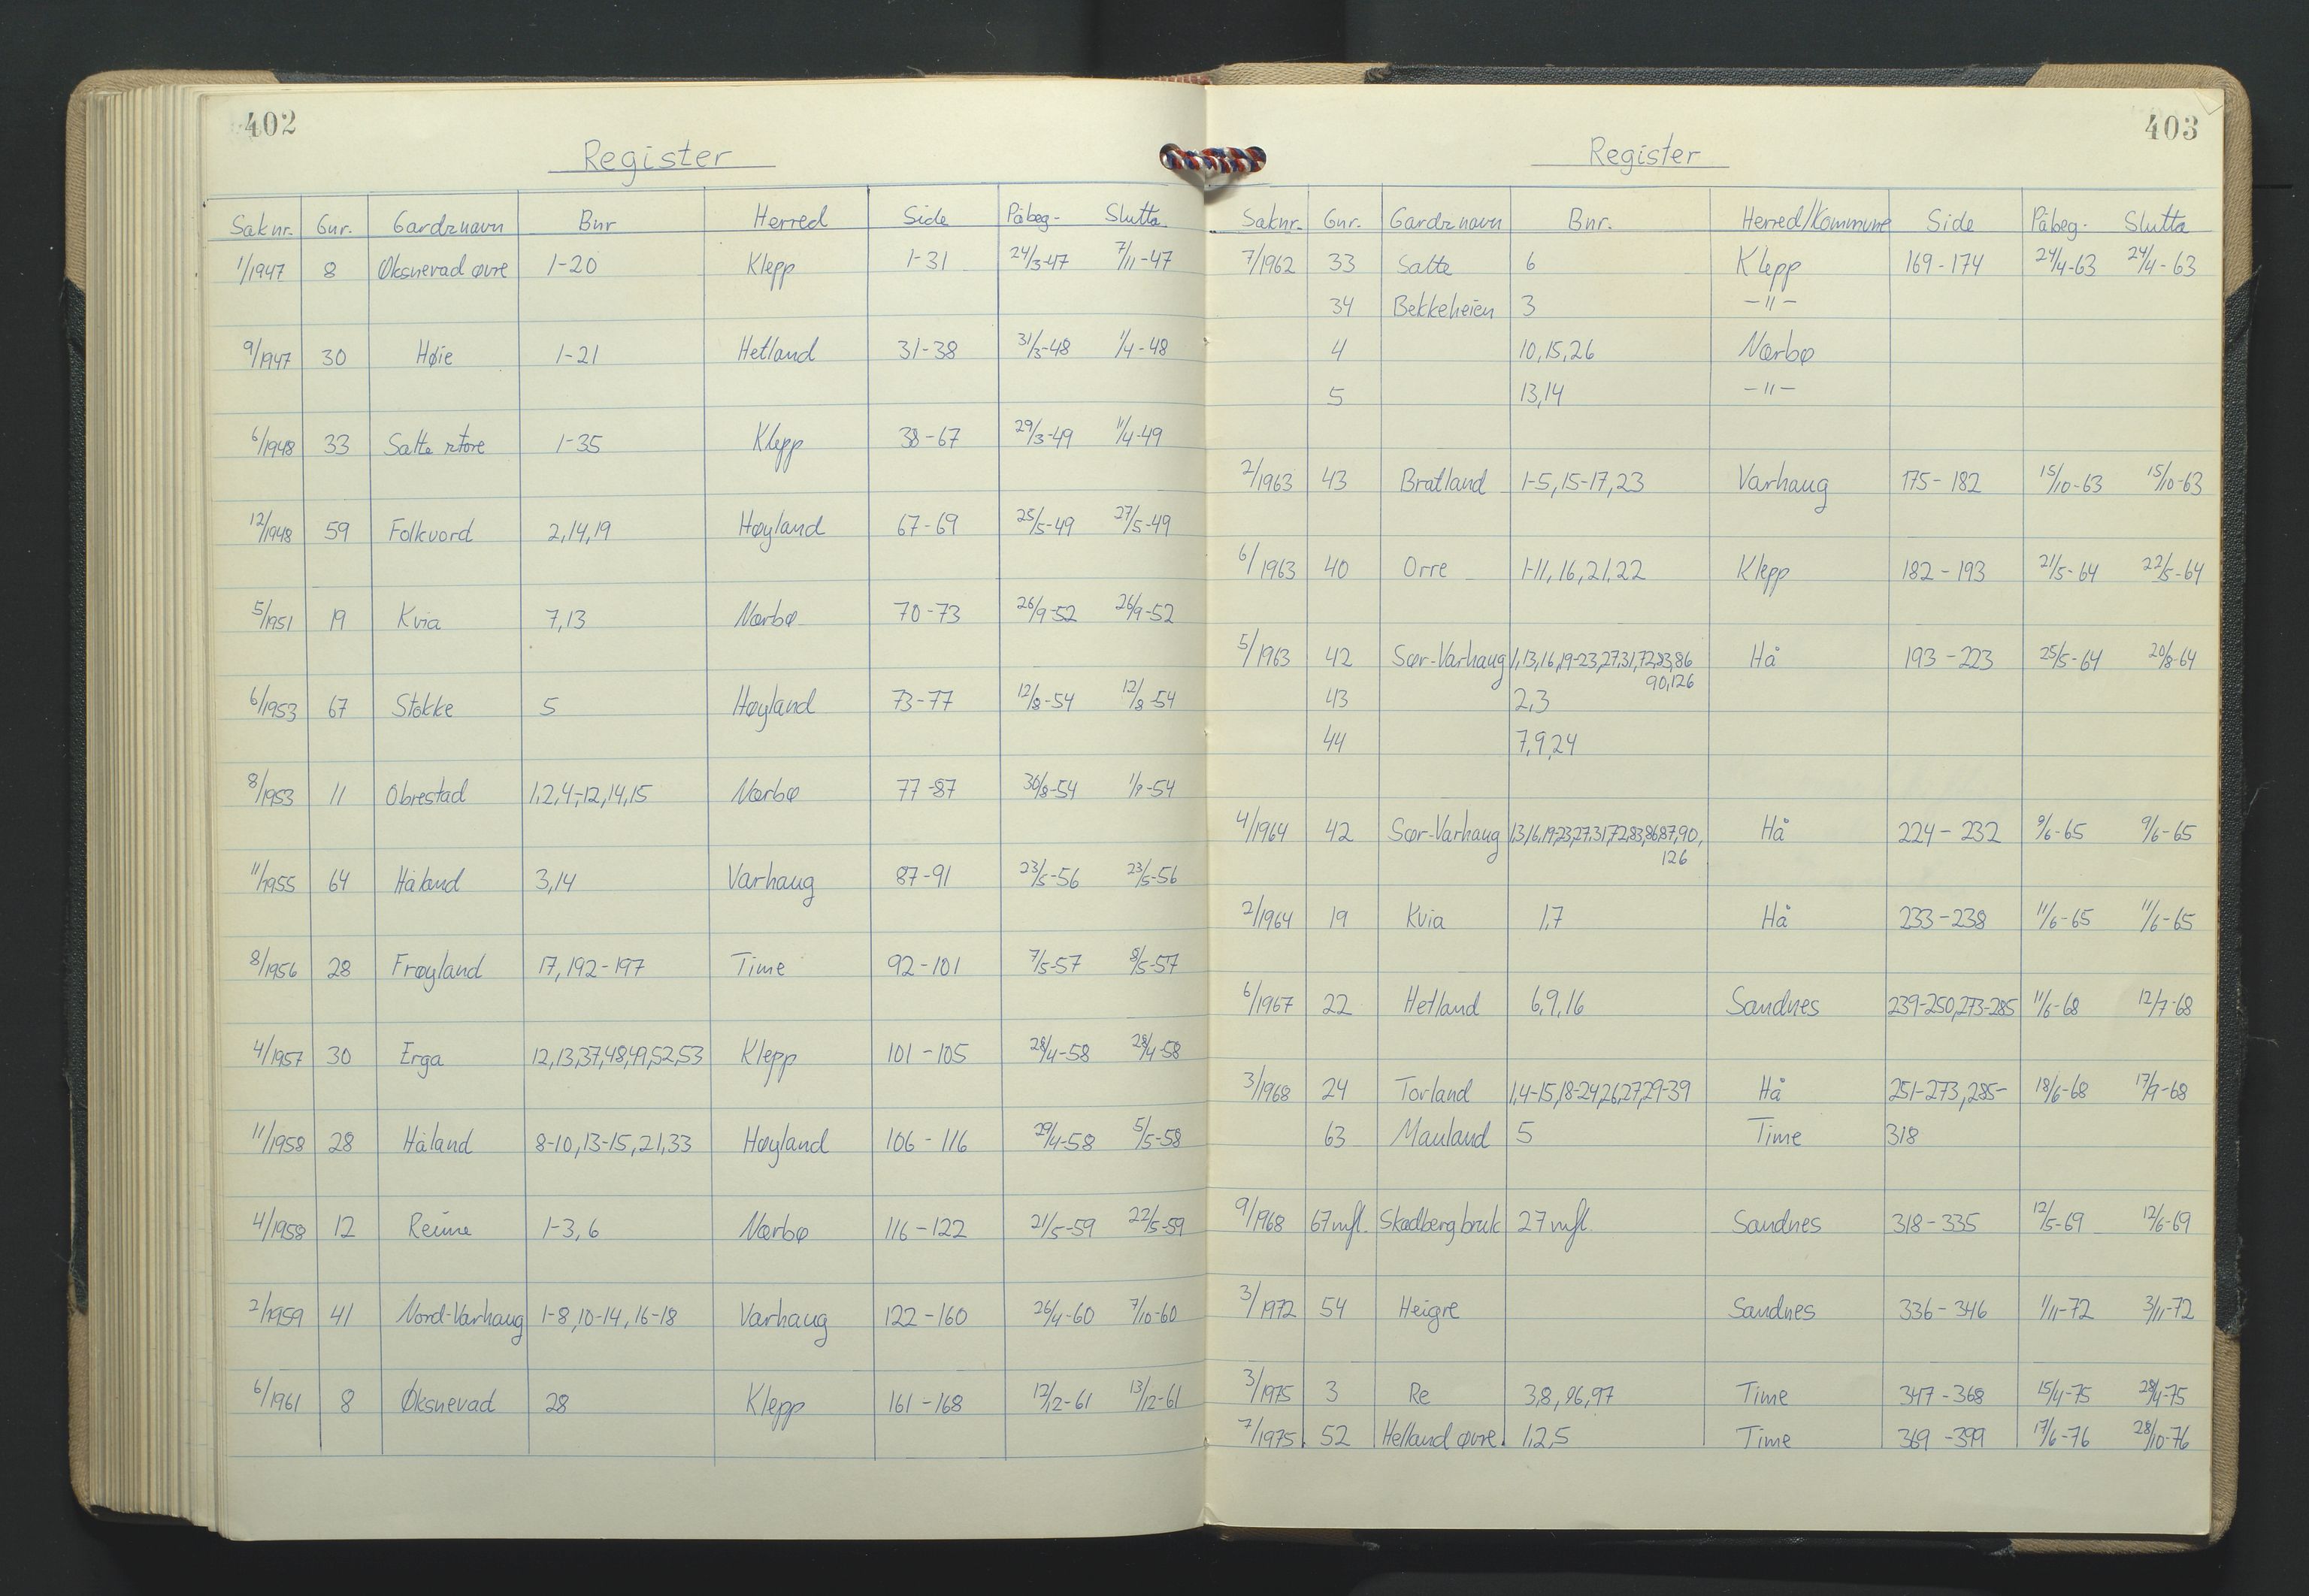 402
Register
Saknr. Gnr. Gardsnavn Bnr Herred Side Påbeg- Slutta
1/1947 8 Øksnevad øvre 1-20 Klepp 1-31 24/3-47 7/11-47
9/1947 30 Høie 1-21 Hetland 31-38 31/3-48 1/4-48
6/1948 33 Salte store 1-35 Klepp 38-67 29/3-49 1/4-49
12/1948 59 Folkvord 2,14,19 Høyland 67-69 25/5-49 27/5-49
5/1951 19 Kvia 7,13 Nærbø 70-73 26/9-52 26/9-52
6/1953 67 Stokke 5 Høyland 73-77 12/8-54 12/8-54
8/1953 11 Obrestad 1,2,4-12,14,15 Nærbø 77-87 30/8-54 1/9-54
11/1955 64 Håland 3,14 Varhaug 87-91 23/5-56 23/5-56
8/1956 28 Frøyland 17,192-197 Time 92-101 7/5-57 8/5-57
4/1957 30 Erga 12,13,37,48,49,52,53 Klepp 101-105 28/4-58 28/4-58
11/1958 28 Håland 8-10,13-15,21,33 Høyland 106-116 29/4-58 5/5-58
4/1958 12 Reime 1-3,6 Nærbø 116-122 21/5-59 22/5-59
2/1959 41 Nord-Varhaug 1-8,10-14,16-18 Varhaug 122-160 26/4-60 7/10-60
6/1961 8 Øksnevad 28 Klepp 161-168 12/12-61 13/12-61
403
Register
Saknr. Gnr. Gardsnavn Bnr. Herred/Kommune Side Påbeg- Slutta
7/1962 33 Salte 6 Klepp 169-174 24/4-63 24/4-63
34 Bekkeheien 3 -"-
4 10,15,26 Nærbø
5 13,14 -"-
2/1963 43 Bratland 1-5,15-17,23 Varhaug 175-182 15/10-63 15/10-63
6/1963 40 Orre 1-11,16,21,22 Klepp 182-193 21/5-64 22/5-64
5/1963 42 Sør-Varhaug 1,13,16,19-23,27,31,72,83,86 Hå 193-223 25/5-64 20/8-64
90,126
43 2,3
44 7,9,24
4/1964 42 Sør-Varhaug 1,3,16,19-23,27,31,72,83,86,87,90, Hå 224-232 9/6-65 9/6-65
126
2/1964 19 Kvia 1,7 Hå 233-238 11/6-65 11/6-65
6/1967 22 Hetland 6,9,16 Sandnes 239-250,273-285 11/6-68 12/7-68
3/1968 24 Torland 1,4-15,18-24,26,27,29-39 Hå 251-273,285- 18/6-68 17/9-68
63 Mauland 5 Time 318
9/1968 67 mfl. Skadberg bruk 27 mfl. Sandnes 318-335 12/5-69 12/6-69
3/1972 54 Heigre Sandnes 336-346 1/11-72 3/11-72
3/1975 3 Re 3,8,96,97 Time 347-368 15/4-75 28/4-75
7/1975 52 Helland øvre 1,2,5 Time 369-399 17/6-76 28/10-76